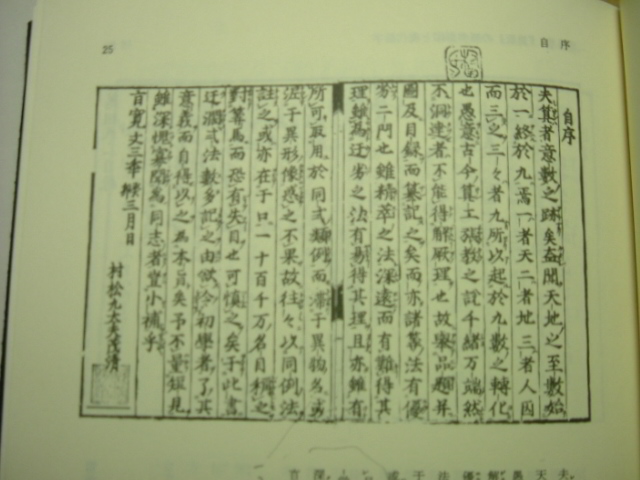 25
自序
自序
夫筭者意數之跡矣盖聞天地之至數始
於一終於九焉一者天二者地三者人因
而三之三々者九所以起於九數之轉化
也愚意古今筭士張教之設千緒万端然
不洞達者不能得解厥理也故擧品題并
圖及目録而纂記之矣而亦諸筭法有優
劣二門也雖精萃之法深遠而有難得其
理雖為迂劣之法有易得其理且亦雖有
所可取用於同式類例而滞于異約名或
泥于異形像惑之不果故往々以同例法
註之或亦在于只一十百千万名目稱之
對筭為而恐有失目也可慎之矣于此書
迂濶式法數多記之由欲令初學者了其
意義而自得以之為本矣予不量見
雖深慙寡聞為同志者豈小補乎
旹寛文三年癸卯三月日
村松九太夫茂清